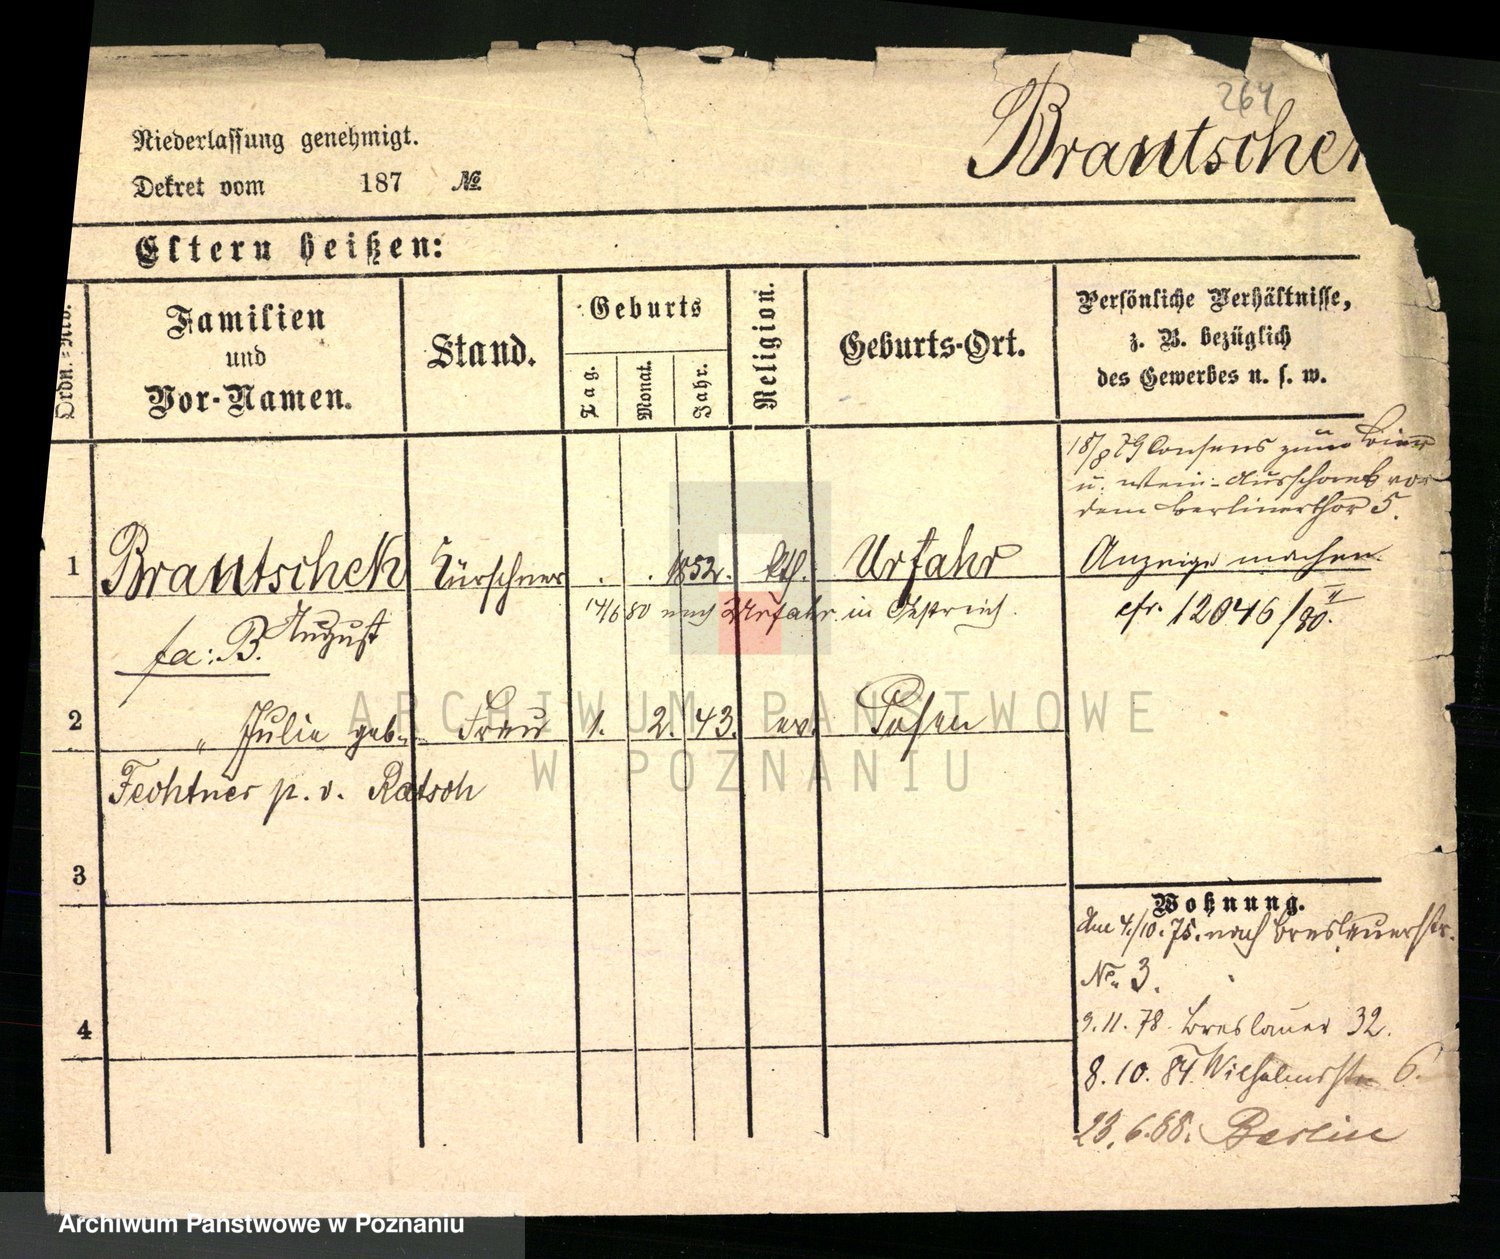 264
Brautschek
Niederlassung genehmigt.
Dekret vom 187 No
Eltern heißen:
Ordn.=Nro.
Familien
und
Vor-Namen.
Stand.
Geburts
Tag.
Monat.
Jahr.
Religion.
Geburts-Ort.
Persönliche Verhältnisse,
z. B. bezüglich
des Gewerbes u. s. w.
18/8 79 Consens zum Bier
u. Wein-Ausschank vor
dem Berlinerthor 5.
Anzeige machen.
cfr. 12046/80. II
1 Brautschek Kürschner . . 1852. kth. Urfahr
August
14/6 80 nach Urfahr in Oestreich.
fa: B.
2 " Julie geb. Frau 1. 2. 43. ev. Posen
Fechtner p. v. Ratsch
3
4
Wohnung.
Am 4/10. 75. nach Breslauerstr.
No. 3.
9. 11. 78. Breslauer 32.
8. 10. 84 Wilhelmstr 6.
23. 6. 88. Berlin
ARCHIWUM PAŃSTWOWE
W POZNANIU
Archiwum Państwowe w Poznaniu